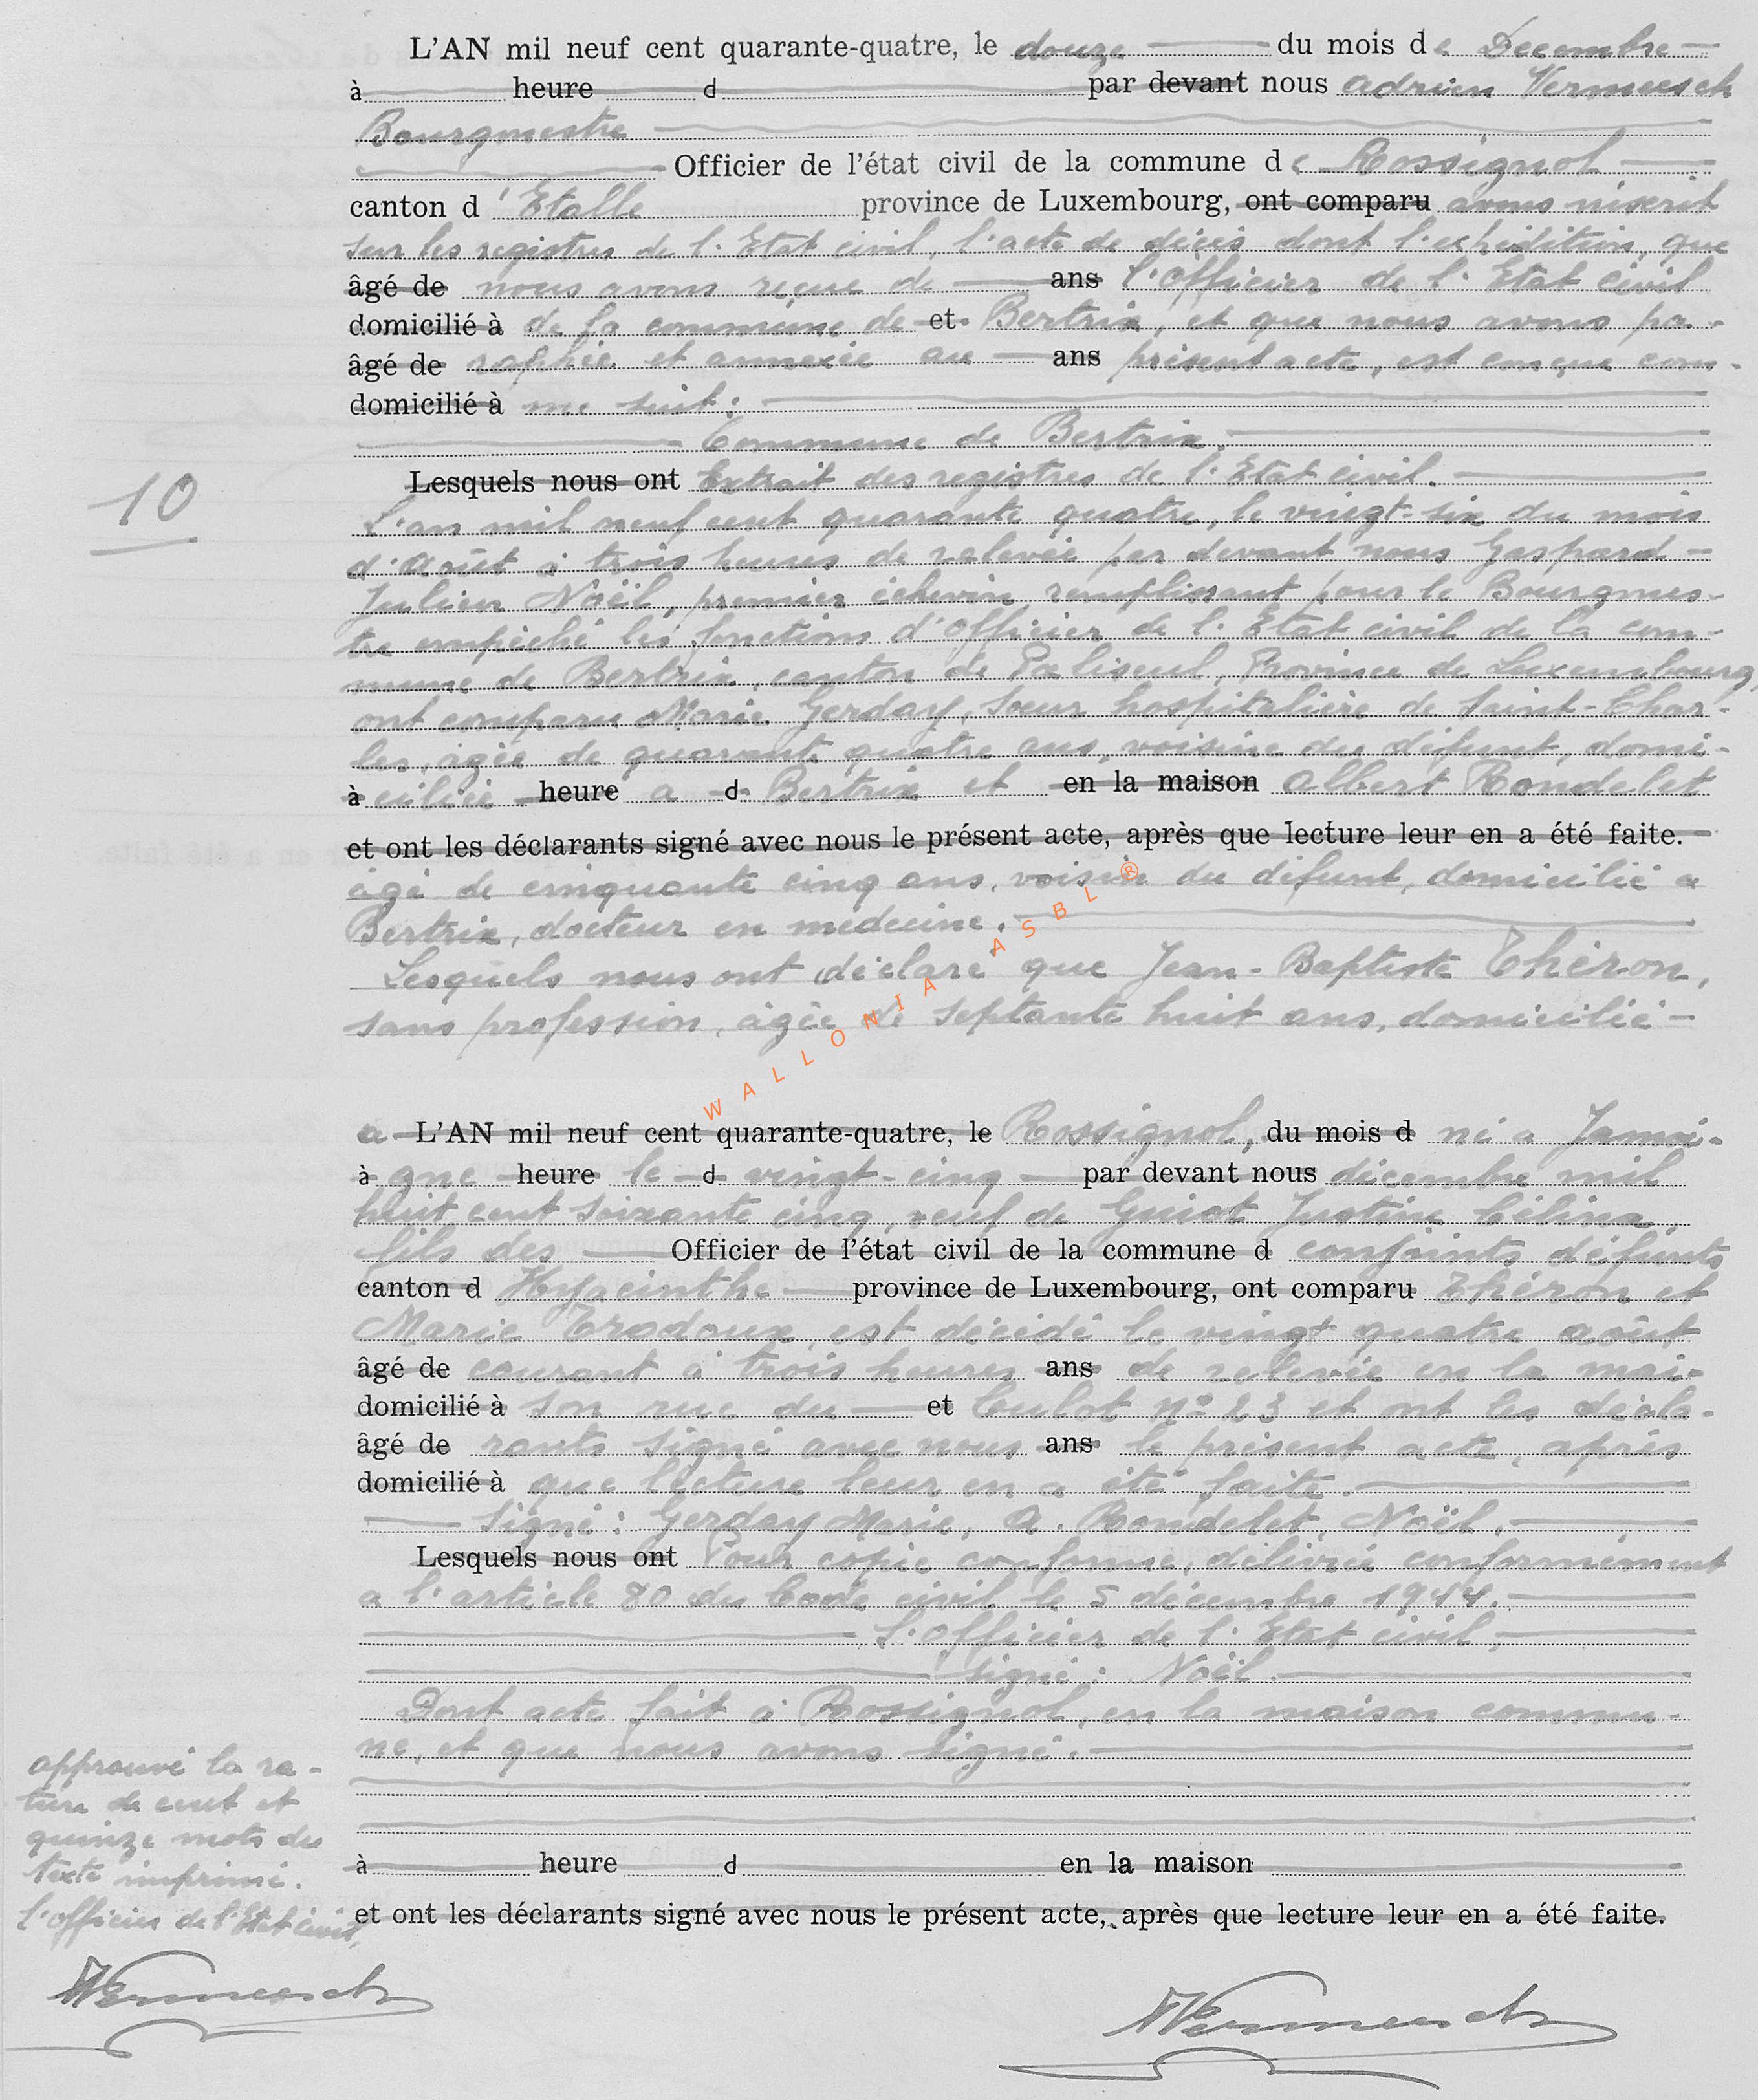 L'AN mil neuf cent quarante-quatre, le douze du mois de Décembre
à heure d par devant nous Adrien Vermeesch
Bourgmestre
Officier de l'état civil de la commune de Rossignol
canton d'Etalle province de Luxembourg, ont comparu avons inscrit
sur les registres de l'Etat civil, l'acte de décès dont l'expédition, que
âgé de nous avons reçue de ans l'Officier de l'Etat civil
domicilié à de la commune de et Bertrix, et que nous avons pa-
âgé de raphée et annexée au ans présent acte, est conçue com-
domicilié à me suit :
Commune de Bertrix.
Lesquels nous ont Extrait des registres de l'Etat civil.
10
L'an mil neuf cent quarante quatre, le vingt-six du mois
d'août à trois heures de relevée par devant nous Gaspard
Julien Noël, premier échevin remplissant pour le Bourgmes-
tre empêché les fonctions d'Officier de l'Etat civil de la com-
mune de Bertrix, canton de Paliseul, Province de Luxembourg,
ont comparu Marie Gerday, Sœur hospitalière de Saint-Char-
les, âgée de quarante quatre ans, voisine du défunt, domi-
à ciliée heure à d Bertrix et en la maison Albert Rondelet
et ont les déclarants signé avec nous le présent acte, après que lecture leur en a été faite.
âgé de cinquante cinq ans, voisin du défunt, domicilié à
Bertrix, docteur en médecine.
Lesquels nous ont déclaré que Jean-Baptiste Théron,
sans profession, âgée de septante huit ans, domicilié
WALLONIA ASBL ®
à L'AN mil neuf cent quarante-quatre, le Rossignol, du mois d né à Jamoi-
à gne heure le d vingt-cinq par devant nous décembre mil
huit cent soixante cinq, veuf de Guiot Justine Célina,
fils des Officier de l'état civil de la commune d conjoints défunts
canton d Hyacinthe province de Luxembourg, ont comparu Théron et
Marie Trodoux, est décédé le vingt quatre août
âgé de courant à trois heures ans de relevée en la mai-
domicilié à son rue du et Culot n° 23 et ont les décla-
âgé de rants signé avec nous ans le présent acte, après
domicilié à que lecture leur en a été faite.
Signé : Gerday Marie, A. Rondelet, Noël.
Lesquels nous ont Pour copie conforme, délivrée conformément
à l'article 80 du Code civil le 5 décembre 1944.
L'Officier de l'Etat civil,
signé : Noël.
Dont acte fait à Rossignol, en la maison commu-
ne, et que nous avons signé.
approuvé la ra-
ture de cent et
quinze mots du
texte imprimé.
l'officier de l'Etat civil,
à heure d en la maison
et ont les déclarants signé avec nous le présent acte, après que lecture leur en a été faite.
Vermeesch
Vermeesch